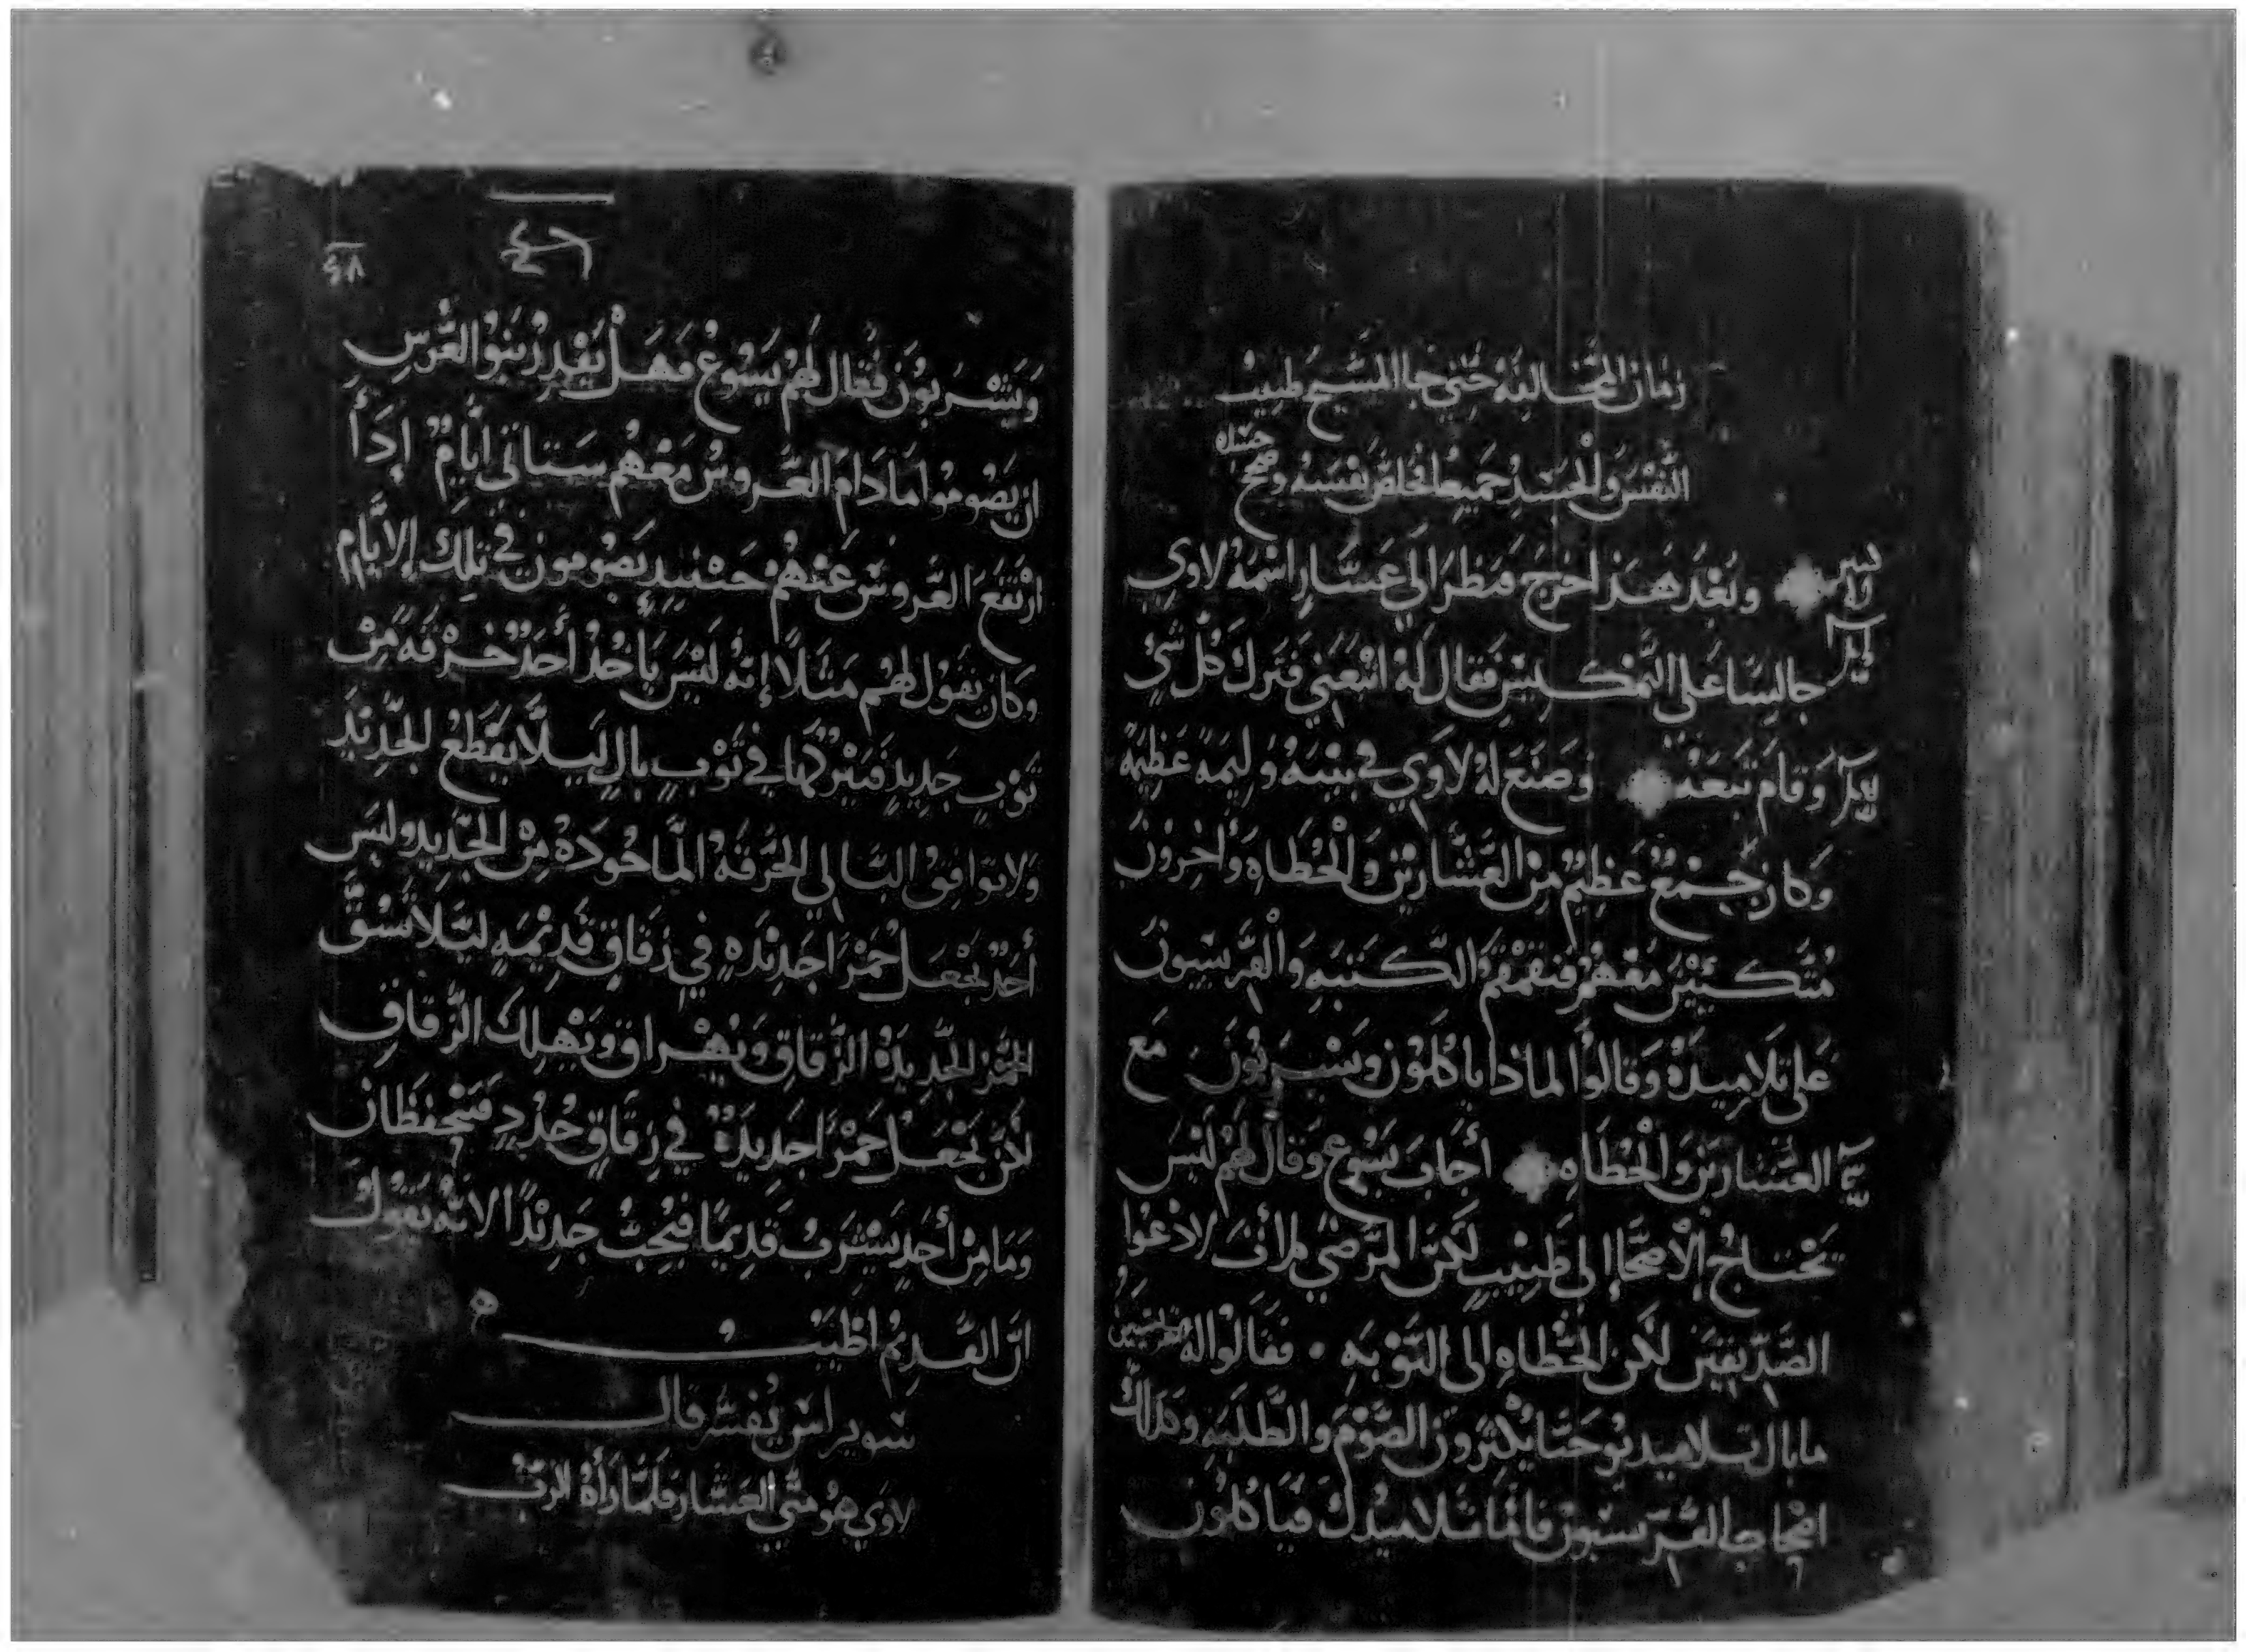 زمان المخالفه حتى جا المسيح طبيب
النفس والجسد جميعا فخلص نفسه وصح
جسده
وَبَعْدُ هَذا خرج فنظر الى عشار اسمه لاوي
جالسا على التمكيس فقال له اتبعني فترك كل شي
وقام تبعه وصنع له لاوي في بيته وليمة عظيمة
وكان جمع عظيم من العشارين والخطاه واخرون
متكيين معهم فتقمقم الكتبه والفريسيون
على تلاميده وقالوا لماذا ياكلون ويشربون مع
العشارين والخطاه أجاب يسوع وقال لهم ليس
تحتاج الأصحا الى طبيب لكن المرضى لم أت لادعوا
الصديقين لكن الخطاه الى التوبه فقالوا له
ما بال تلاميد يوحنا يكثرون الصوم والطلبه وكذلك
اصحاب الفريسيون فاما تلاميدك فياكلون
٤٦
ويشربون فقال لهم يسوع فهل يقدر بنوا العرس
ان يصوموا ما دام العروس معهم ستاتي أيام إدا
ارتفع العروس عنهم حينيد يصومون في تلك الأيام
وكان يقول لهم مثلا إنه ليس ياخد أحد خرقه من
ثوب جديد فيتركها في ثوب بال ليلا يقطع الجديد
ولا توافق البالي الخرقه الماخوده من الجديد وليس
أحد يجعل خمرا جديده في زقاق قديمه ليلا تشق
الخمر الجديده الزقاق ويهراق وتهلك الزقاق
لكن تجعل خمرا جديدة في زقاق جدد فينحفظان
وما من أحد يشرب قديما فيحب جديدا لانه يقول
ان القديم اطيب
سويرس يفسر قال
لاوي هو متى العشار فلما رأه الرب